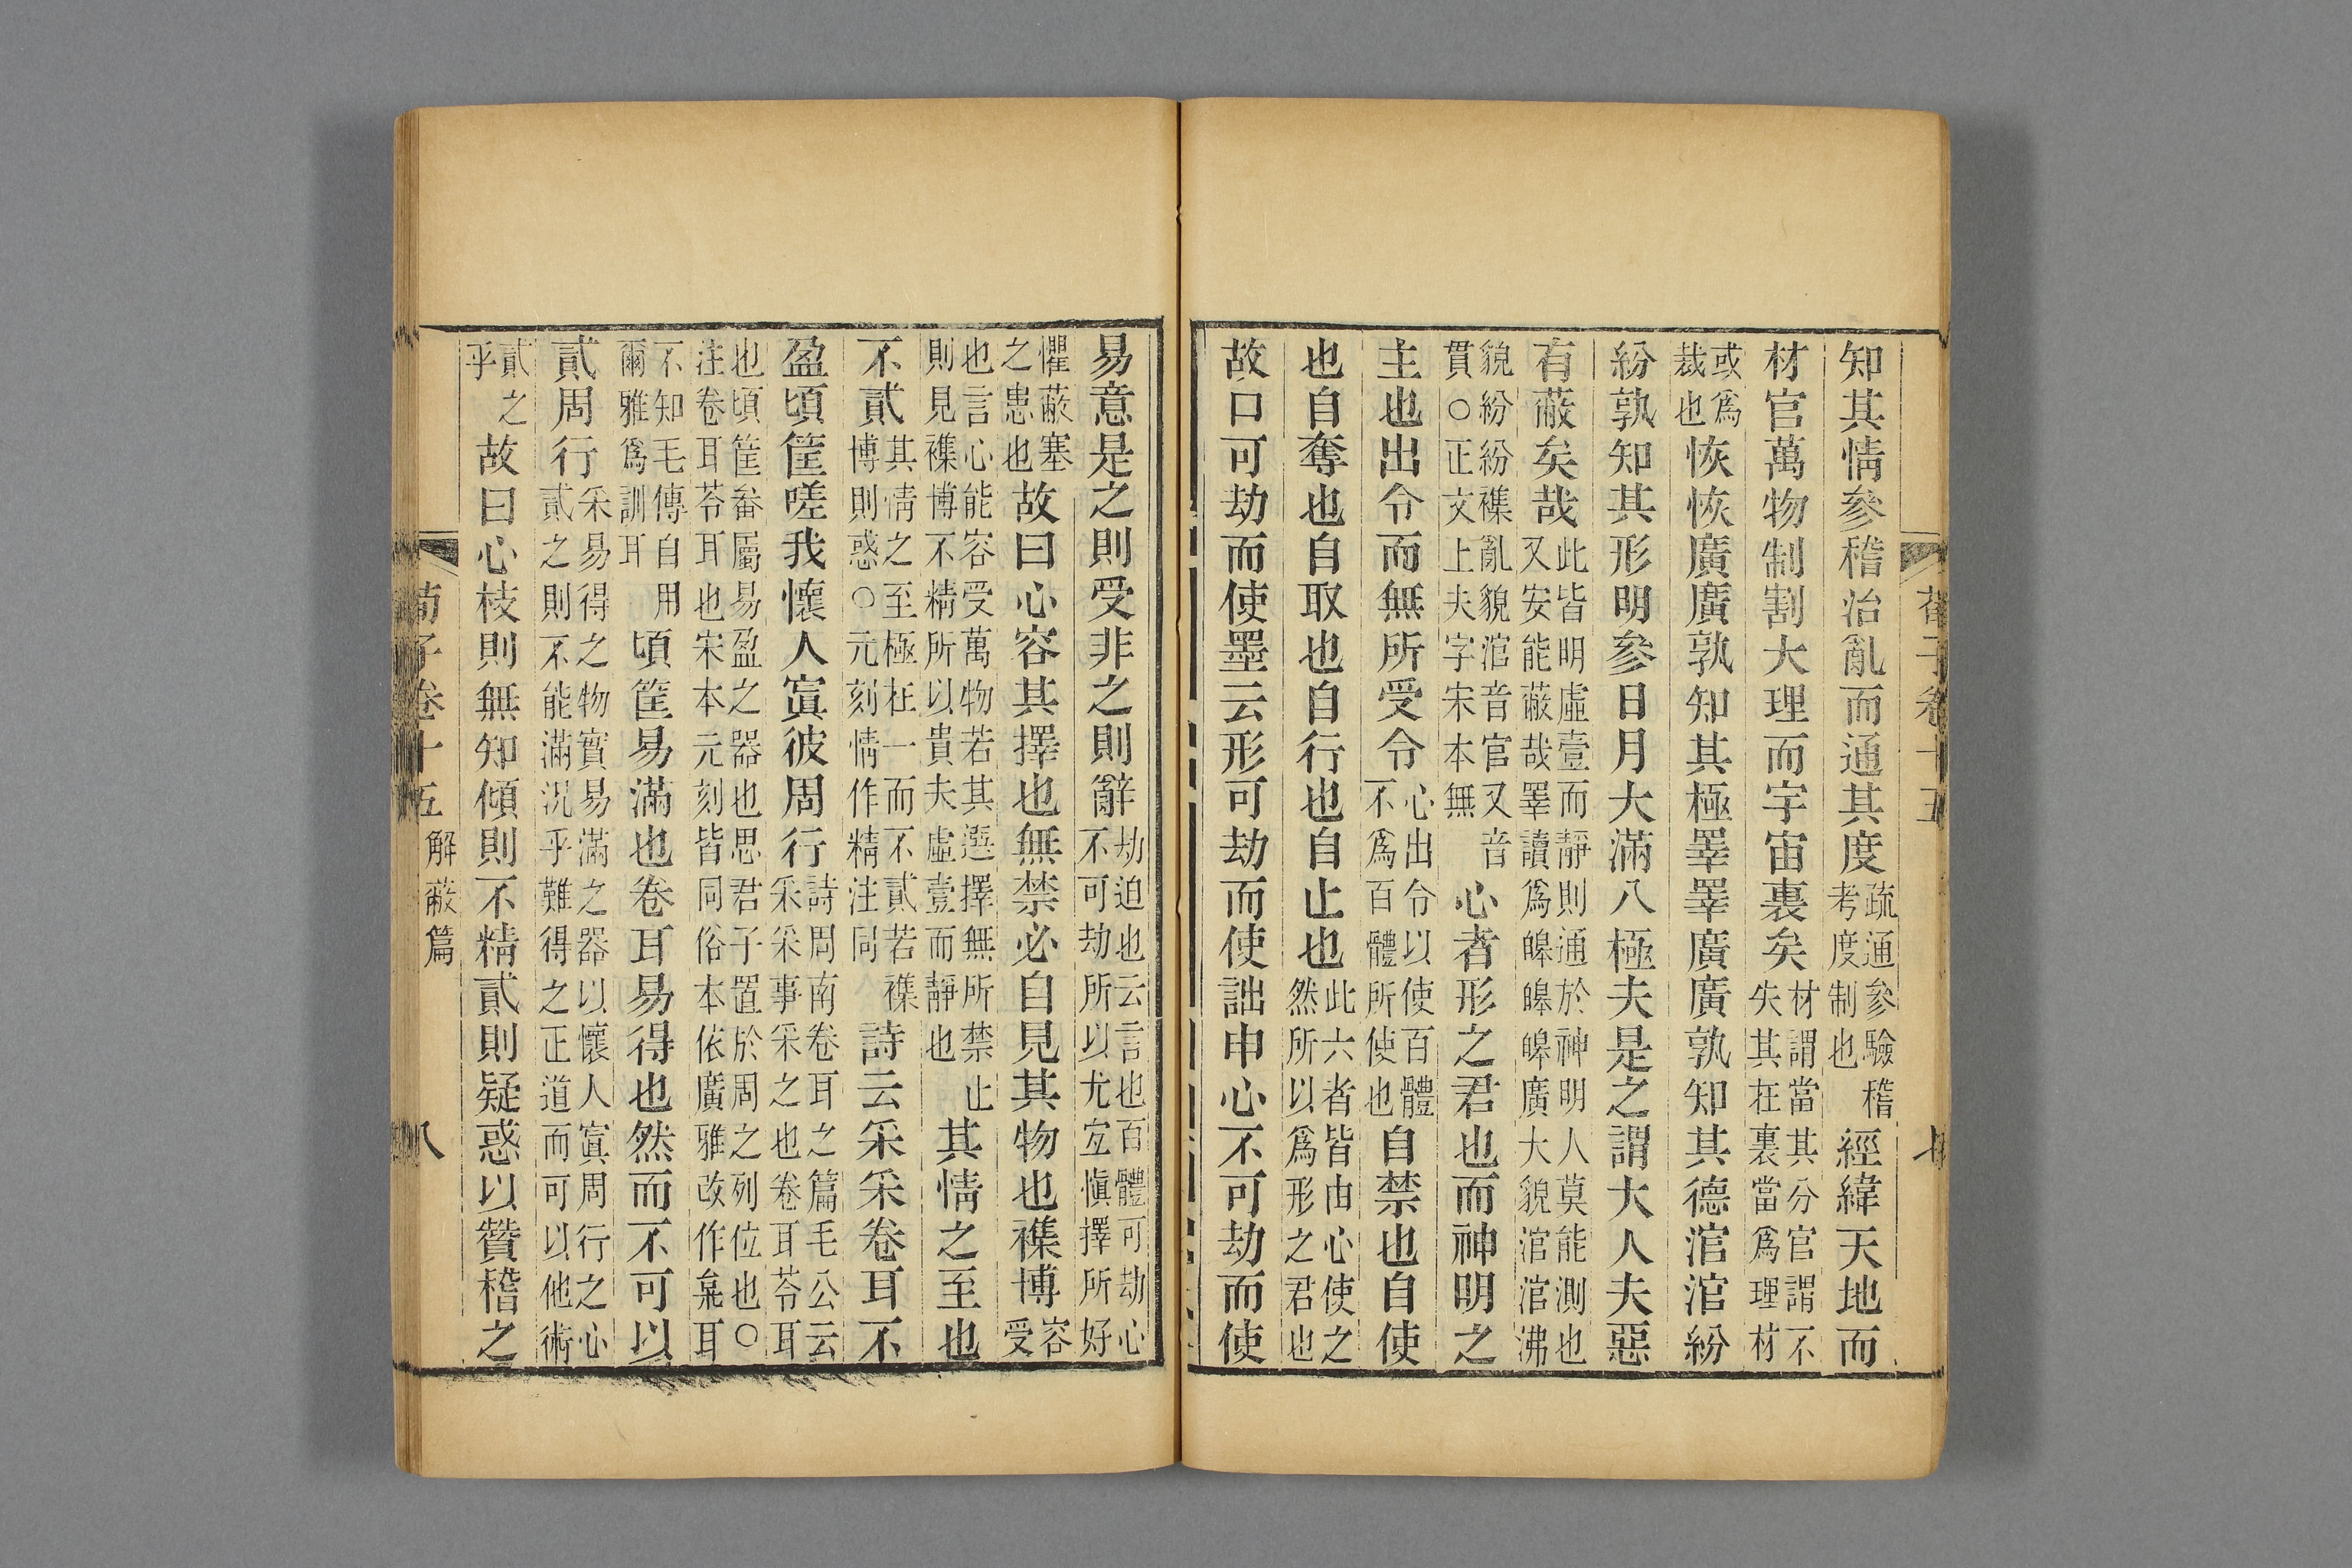 知其情參稽治亂而通其度疏通參驗稽考度制也經緯天地而
材官萬物制割大理而宇宙裏矣材謂當其分官謂不失其在裏當爲理材
或爲裁也恢恢廣廣孰知其極睪睪廣廣孰知其德涫涫紛
紛孰知其形明參日月大滿八極夫是之謂大人夫惡
有蔽矣哉此皆明虛壹而靜則通於神明人莫能測也又安能蔽哉睪讀爲皞皞皞廣大貌涫涫沸
貌紛紛襍亂貌涫音官又音貫○正文上夫字宋本無心者形之君也而神明之
主也出令而無所受令心出令以使百體不爲百體所使也自禁也自使
也自奪也自取也自行也自止也此六者皆由心使之然所以爲形之君也
故口可劫而使墨云形可劫而使詘申心不可劫而使
易意是之則受非之則辭劫迫也云言也百體可劫心不可劫所以尤宐愼擇所好
懼蔽塞之患也故曰心容其擇也無禁必自見其物也襍博容受
也言心能容受萬物若其選擇無所禁止則見襍博不精所以貴夫虛壹而靜也其情之至也
不貳其情之至極在一而不貳若襍博則惑○元刻情作精注同詩云采采卷耳不
盈頃筐嗟我懷人寘彼周行詩周南卷耳之篇毛公云采采事采之也卷耳苓耳
也頃筐畚屬易盈之器也思君子置於周之列位也○注卷耳苓耳也宋本元刻皆同俗本依廣雅改作枲耳
不知毛傳自用爾雅爲訓耳頃筐易滿也卷耳易得也然而不可以
貳周行采易得之物實易滿之器以懷人寘周行之心貳之則不能滿況乎難得之正道而可以他術
貳之乎故曰心枝則無知傾則不精貳則疑惑以贊稽之
荀子卷十五
七
荀子卷十五 解蔽篇
八